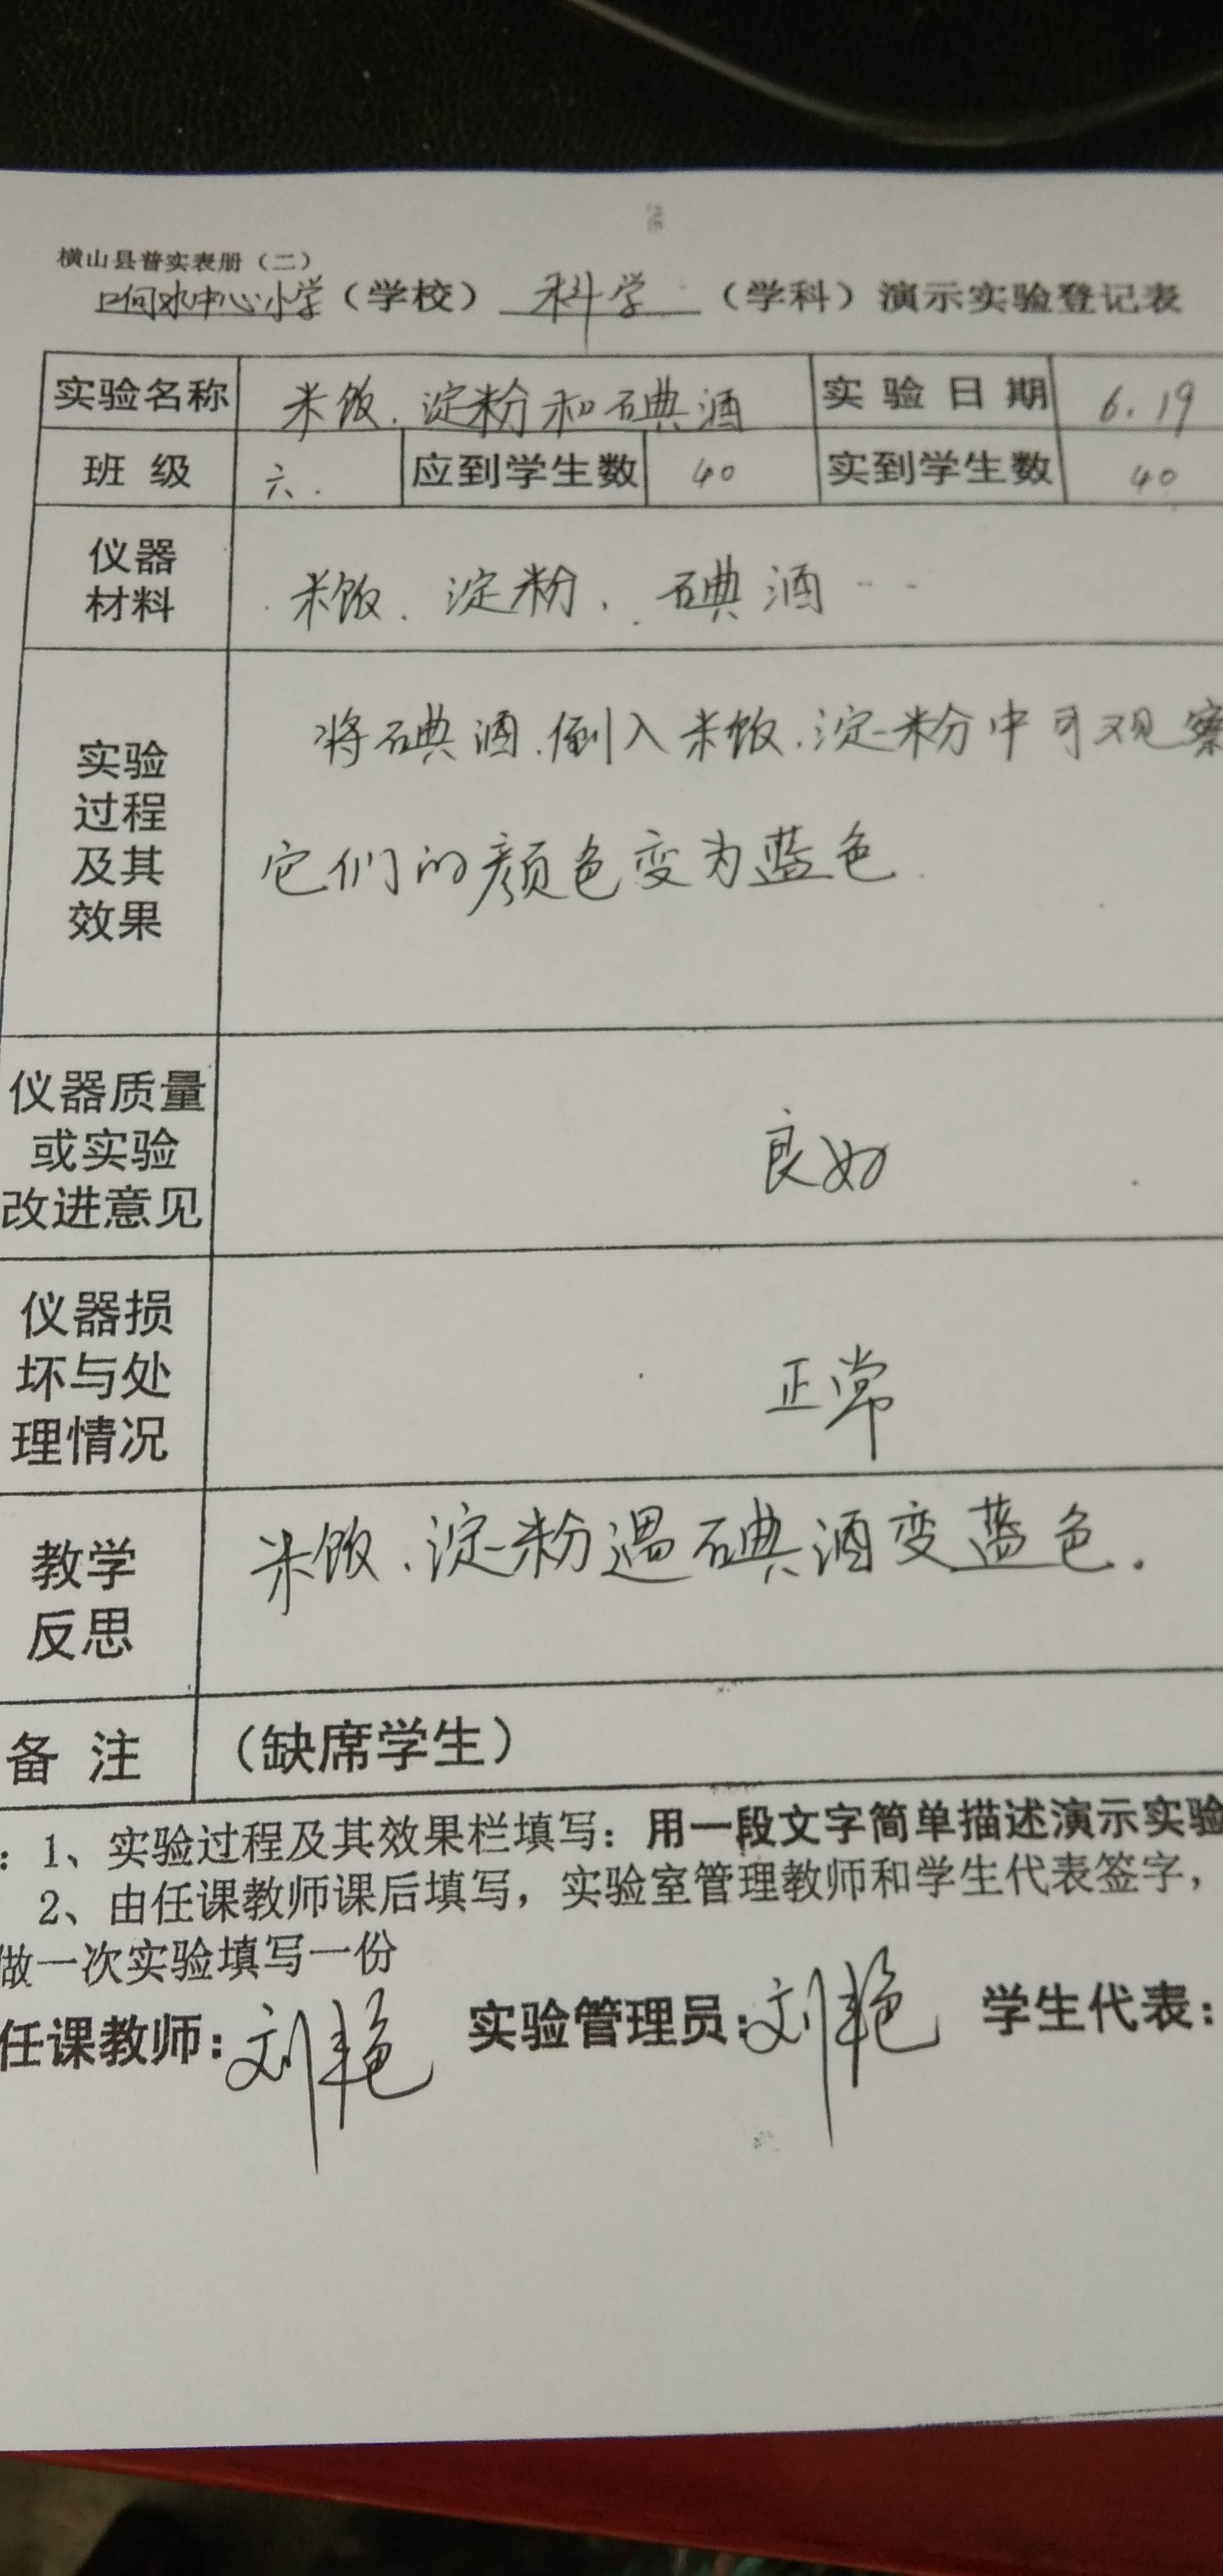 横山县普实表册（二）
响水中心小学（学校） 科学 （学科）演示实验登记表
实验名称 米饭、淀粉和碘酒 实验日期 6.19
班级 六. 应到学生数 40 实到学生数 40
仪器
材料
米饭、淀粉、碘酒
将碘酒倒入米饭、淀粉中可观察
它们的颜色变为蓝色
实验
过程
及其
效果
仪器质量
或实验
改进意见
良好
仪器损
坏与处
理情况
正常
米饭、淀粉遇碘酒变蓝色.
教学
反思
备注 （缺席学生）
：1、实验过程及其效果栏填写：用一段文字简单描述演示实验
2、由任课教师课后填写，实验室管理教师和学生代表签字，
做一次实验填写一份
任课教师：刘艳 实验管理员：刘艳 学生代表：